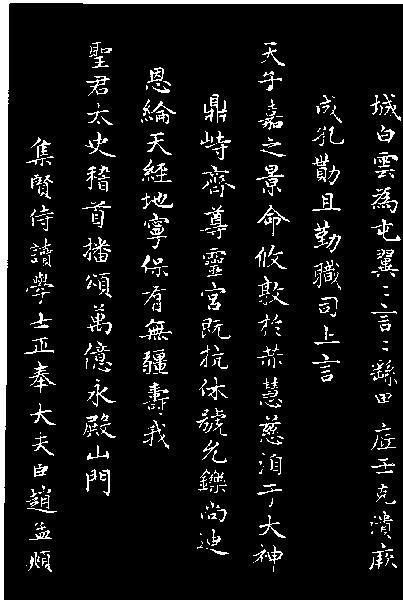 城白雲為屯翼〻言〻繇田庄壬克潰厥
成孔勛且勤職司上言
天子嘉之景命攸敦於恭慧慈洎于大神
鼎峙齊尊靈宮既抗休號允鑠尚迪
恩綸天經地寧保有無疆壽我
聖君太史稽首播頌萬億永殿山門
集賢侍讀學士正奉大夫臣趙孟頫